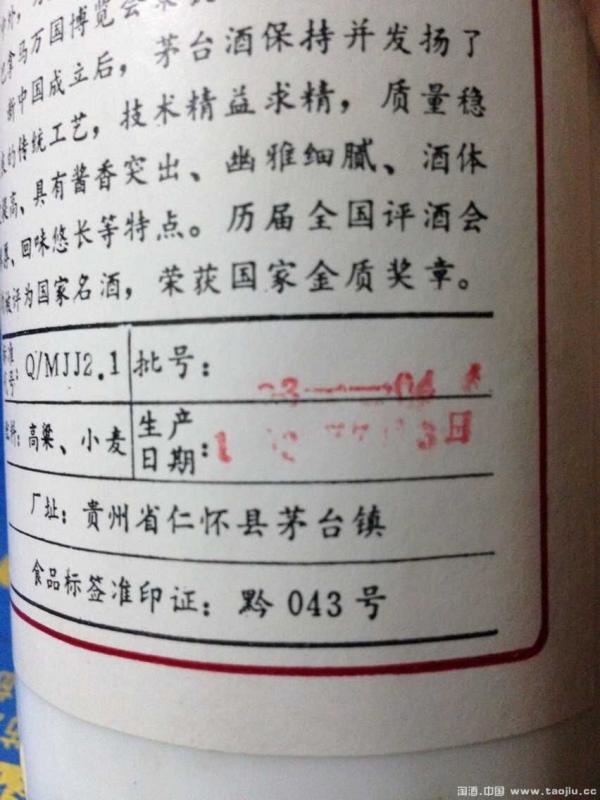 拿马万国博览会
新中国成立后，茅台酒保持并发扬了
的传统工艺，技术精益求精，质量稳
提高、具有酱香突出、幽雅细腻、酒体
回味悠长等特点。历届全国评酒会
被评为国家名酒，荣获国家金质奖章。
Q/MJJ2.1 批号：
高粱、小麦 生产日期： 日
厂址：贵州省仁怀县茅台镇
食品标签准印证：黔043号
淘酒.中国 www.taojiu.cc